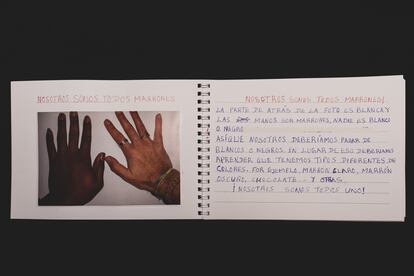 NOSOTROS SOMOS TODOS MARRONES
NOSOTROS SOMOS TODOS MARRONES!
LA PARTE DE ATRÁS DE LA FOTO ES BLANCA Y
LAS MANOS SON MARRONES, NADIE ES BLANCO
O NEGRO
ASÍQUE NOSOTROS DEBERÍAMOS PARAR DE
BLANCOS O NEGROS, EN LUGAR DE ESO DEBERÍAMOS
APRENDER QUE TENEMOS TIPOS DIFERENTES DE
COLORES. POR EJEMPLO, MARRÓN CLARO, MARRÓN
OSCURO, CHOCOLATE... Y OTRAS.
¡NOSOTRS SOMOS TODOS UNO!